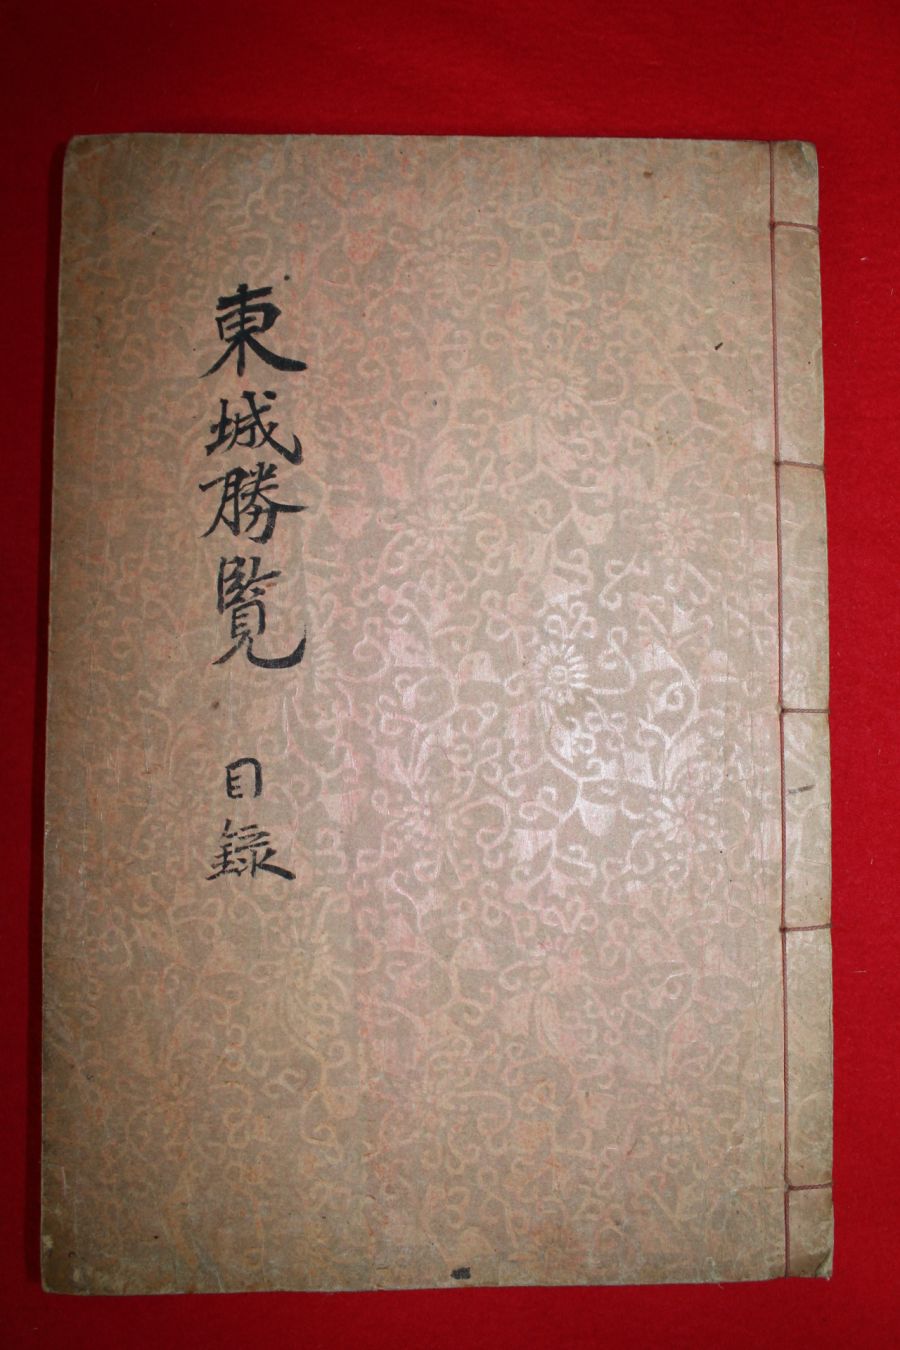 東城勝覽 目錄